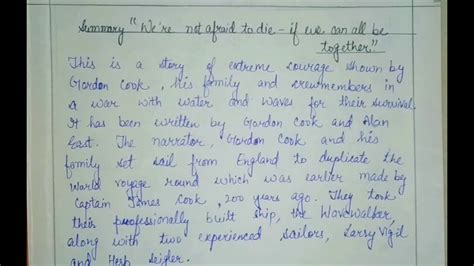 Summary "We're not afraid to die - if we can all be
together"
This is a story of extreme courage shown by
Gordon Cook, his family and crewmembers in
a war with water and waves for their survival.
It has been written by Gordon Cook and Alan
East. The narrator, Gordon Cook and his
family set sail from England to duplicate the
World voyage round which was earlier made by
Captain James Cook, 200 years ago. They took
their professionally built ship, the Wavewalker,
along with two experienced sailors, Larry Vigil
and Herb Seigler.